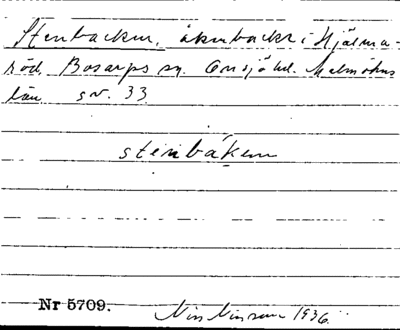 Stenbacken, åkerbacke i Hjälma-
röd Bosarps sn. Onsjö hd. Malmöhus
län sv. 33
stenbakem
Nr 5709. Nils Nilsson 1936.